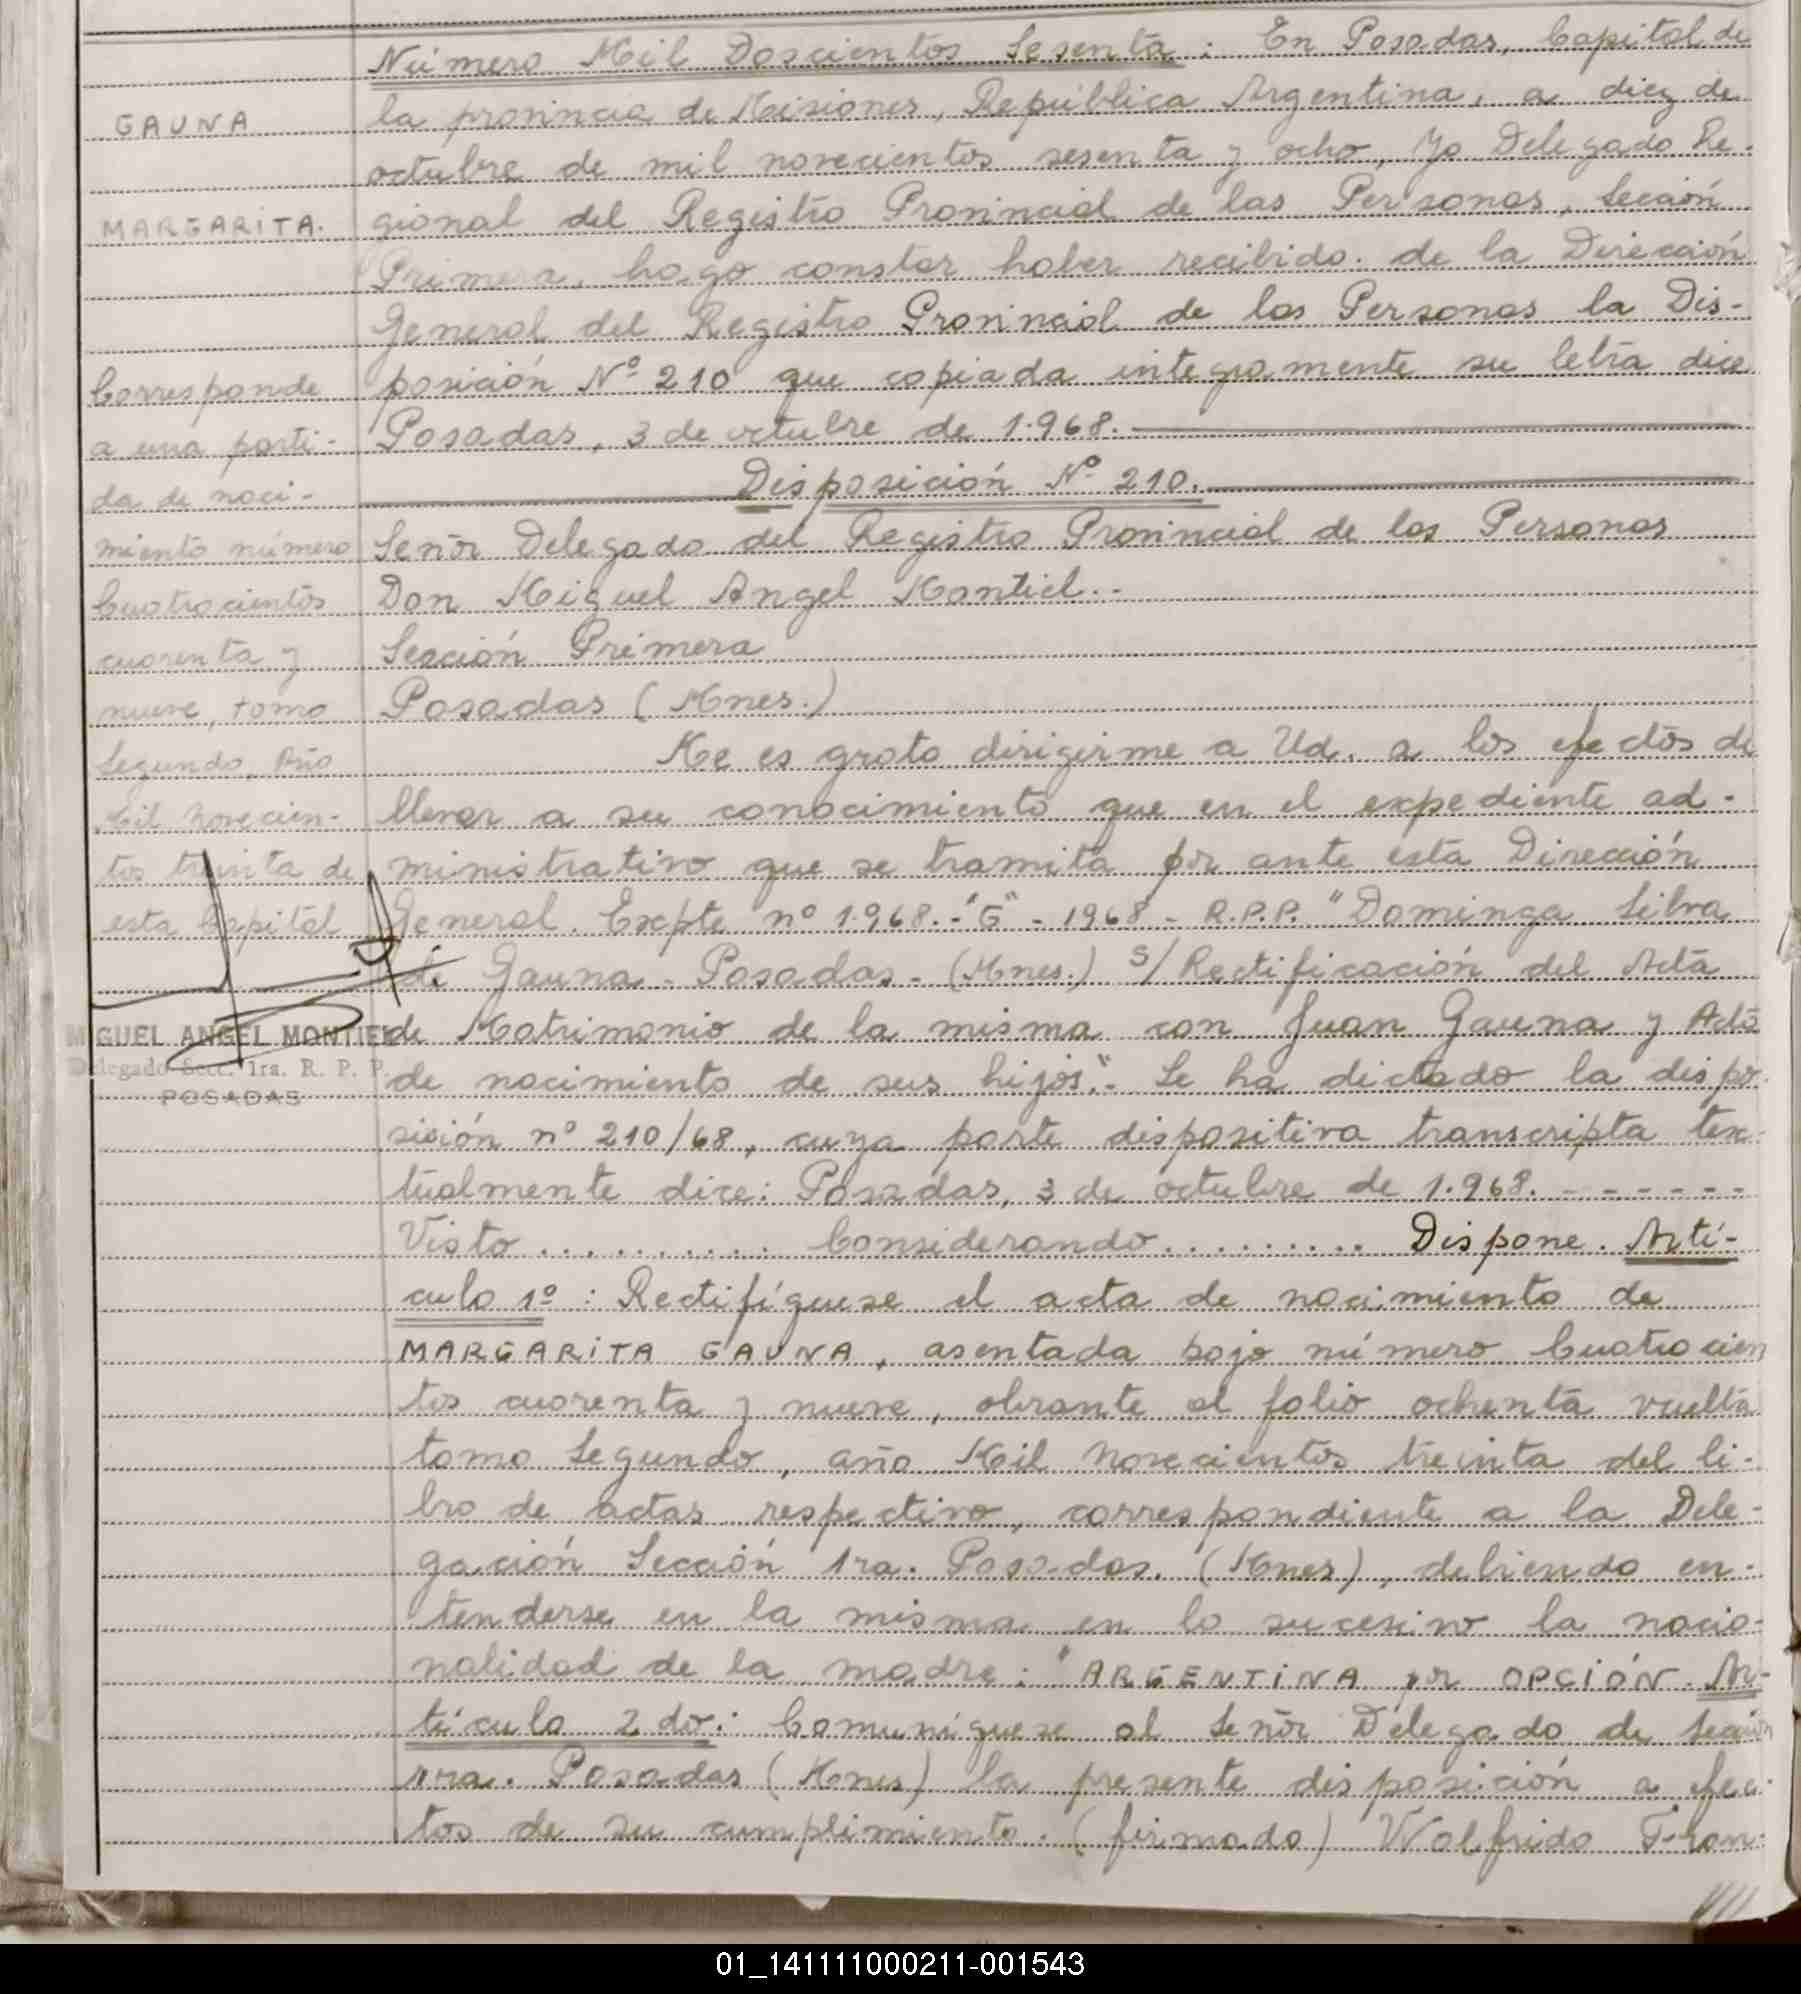 Número Mil Doscientos Sesenta: En Posadas, Capital de
GAUNA
la provincia de Misiones, República Argentina, a diez de
octubre de mil novecientos sesenta y ocho, Yo Delegado Re-
MARGARITA.
gional del Registro Provincial de las Personas, Sección
Primera, hago constar haber recibido de la Dirección
General del Registro Provincial de las Personas la Dis-
posición Nº 210 que copiada integramente su letra dice
Posadas, 3 de octubre de 1.968.
Disposición Nº 210.
Señor Delegado del Registro Provincial de las Personas
Don Miguel Angel Montiel.-
Sección Primera
Posadas (Mnes.)
Me es grato dirigirme a Ud. a los efectos de
llevar a su conocimiento que en el expediente ad-
ministrativo que se tramita por ante esta Dirección
General. Expte nº 1.968.-"G"- 1968 - R.P.P. "Dominga Silva
de Gauna - Posadas - (Mnes.) S/Rectificación del Acta
de Matrimonio de la misma con Juan Gauna y Acta
de nacimiento de sus hijos".- Se ha dictado la dispo-
sición nº 210/68, cuya parte dispositiva transcripta tex-
tualmente dice: Posadas, 3 de octubre de 1.968. - - - - - - -
Visto .......... Considerando ......... Dispone. Artí-
culo 1º: Rectifíquese el acta de nacimiento de
MARGARITA GAUNA, asentada bajo número Cuatrocien
tos cuarenta y nueve, obrante al folio ochenta vuelta
tomo Segundo, año Mil Novecientos treinta del li-
bro de actas respectivo, correspondiente a la Dele-
gación Sección 1ra. Posadas. (Mnes), debiendo en-
tenderse en la misma en lo sucesivo la nacio-
nalidad de la madre: "ARGENTINA por OPCIÓN. Ar-
tículo 2do: Comuníquese al Señor Delegado de Sección
1ra. Posadas (Mnes) la presente disposición a efec-
tos de su cumplimiento. (firmado) Wolfrido Fran-
Corresponde
a una parti-
da de naci-
miento número
Cuatrocientos
cuarenta y
nueve, tomo
Segundo, Año
Mil Novecien-
tos treinta de
esta Capital
MIGUEL ANGEL MONTIEL
Delegado Secc. 1ra. R. P. P.
POSADAS
01_141111000211-001543